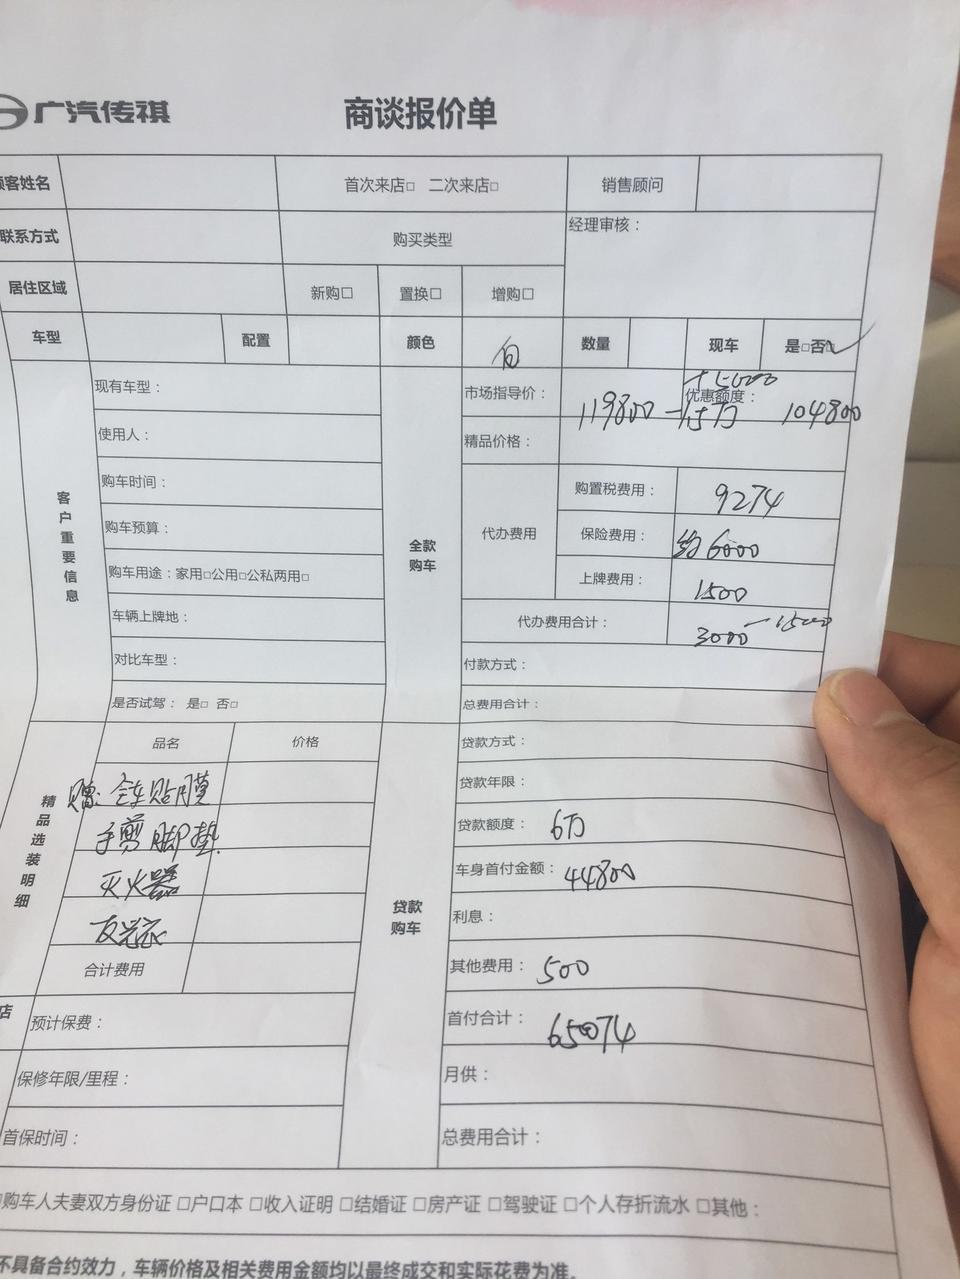 广汽传祺 商谈报价单
顾客姓名 首次来店□ 二次来店□ 销售顾问
联系方式 购买类型 经理审核：
居住区域 新购□ 置换□ 增购□
车型 配置 颜色 白 数量 现车 是□否□
客户重要信息
现有车型：
使用人：
购车时间：
购车预算：
购车用途：家用□公用□公私两用□
车辆上牌地：
对比车型：
是否试驾： 是□ 否□
全款购车
市场指导价： 119800 优惠额度： 104800
精品价格：
代办费用
购置税费用： 9274
保险费用： 约6000
上牌费用： 1500
代办费用合计： 3000
付款方式：
总费用合计：
精品选装明细
品名 价格
赠：全车贴膜
手剪脚垫
灭火器
反光衣
合计费用
贷款购车
贷款方式：
贷款年限：
贷款额度： 6万
车身首付金额： 44800
利息：
其他费用： 500
首付合计： 65074
月供：
总费用合计：
店
预计保费：
保修年限/里程：
首保时间：
购车人夫妻双方身份证 □户口本 □收入证明 □结婚证 □房产证 □驾驶证 □个人存折流水 □其他：
不具备合约效力，车辆价格及相关费用金额均以最终成交和实际花费为准。